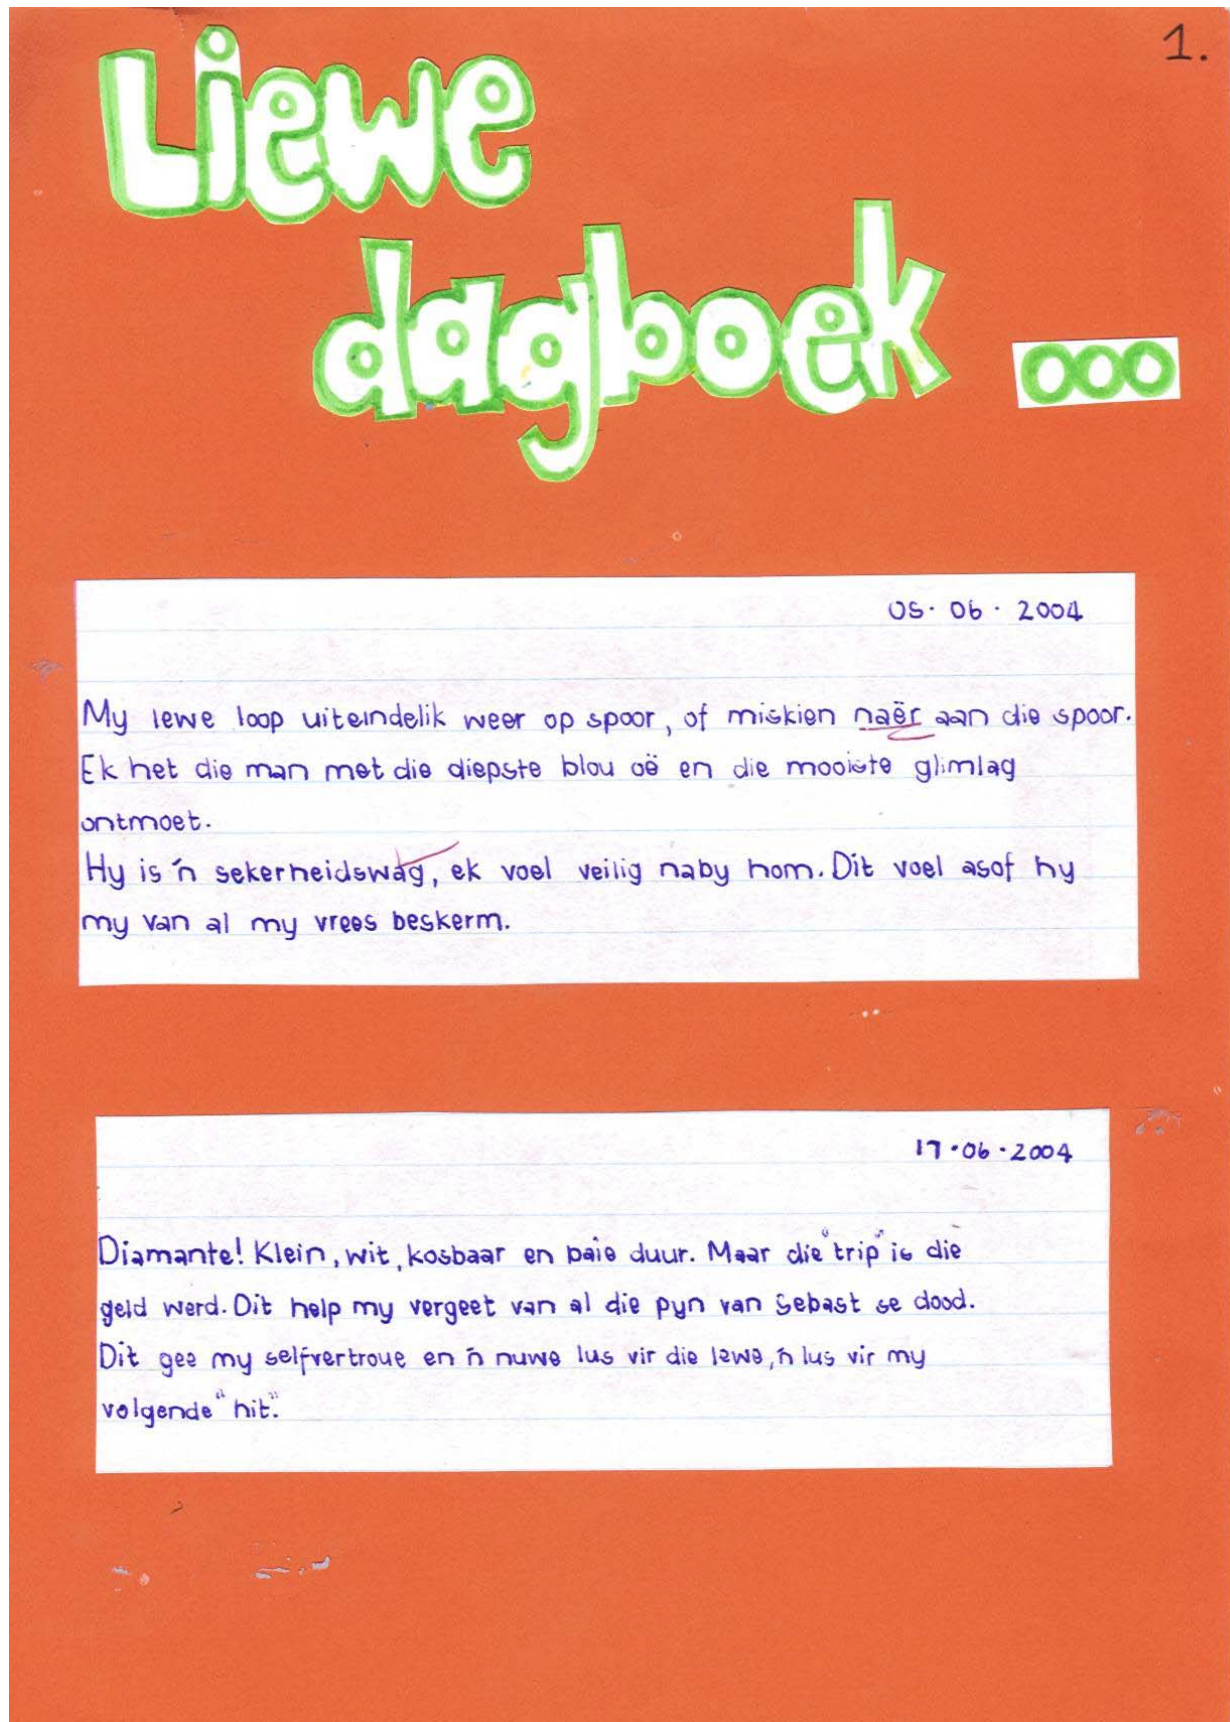 1.
Liewe
dagboek ...
05.06.2004
My lewe loop uiteindelik weer op spoor, of miskien naër aan die spoor.
Ek het die man met die diepste blou oë en die mooiste glimlag
ontmoet.
Hy is 'n sekerheidswag, ek voel veilig naby hom. Dit voel asof hy
my van al my vrees beskerm.
17.06.2004
Diamante! Klein, wit, kosbaar en baie duur. Maar die "trip" is die
geld werd. Dit help my vergeet van al die pyn van Sebast se dood.
Dit gee my selfvertroue en 'n nuwe lus vir die lewe, 'n lus vir my
volgende "hit".